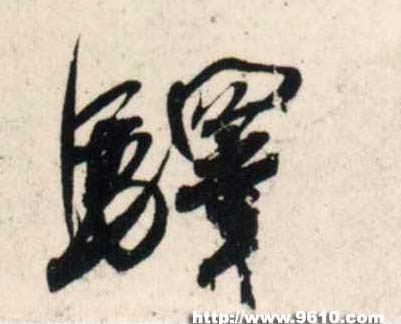 驛
http://www.9610.com